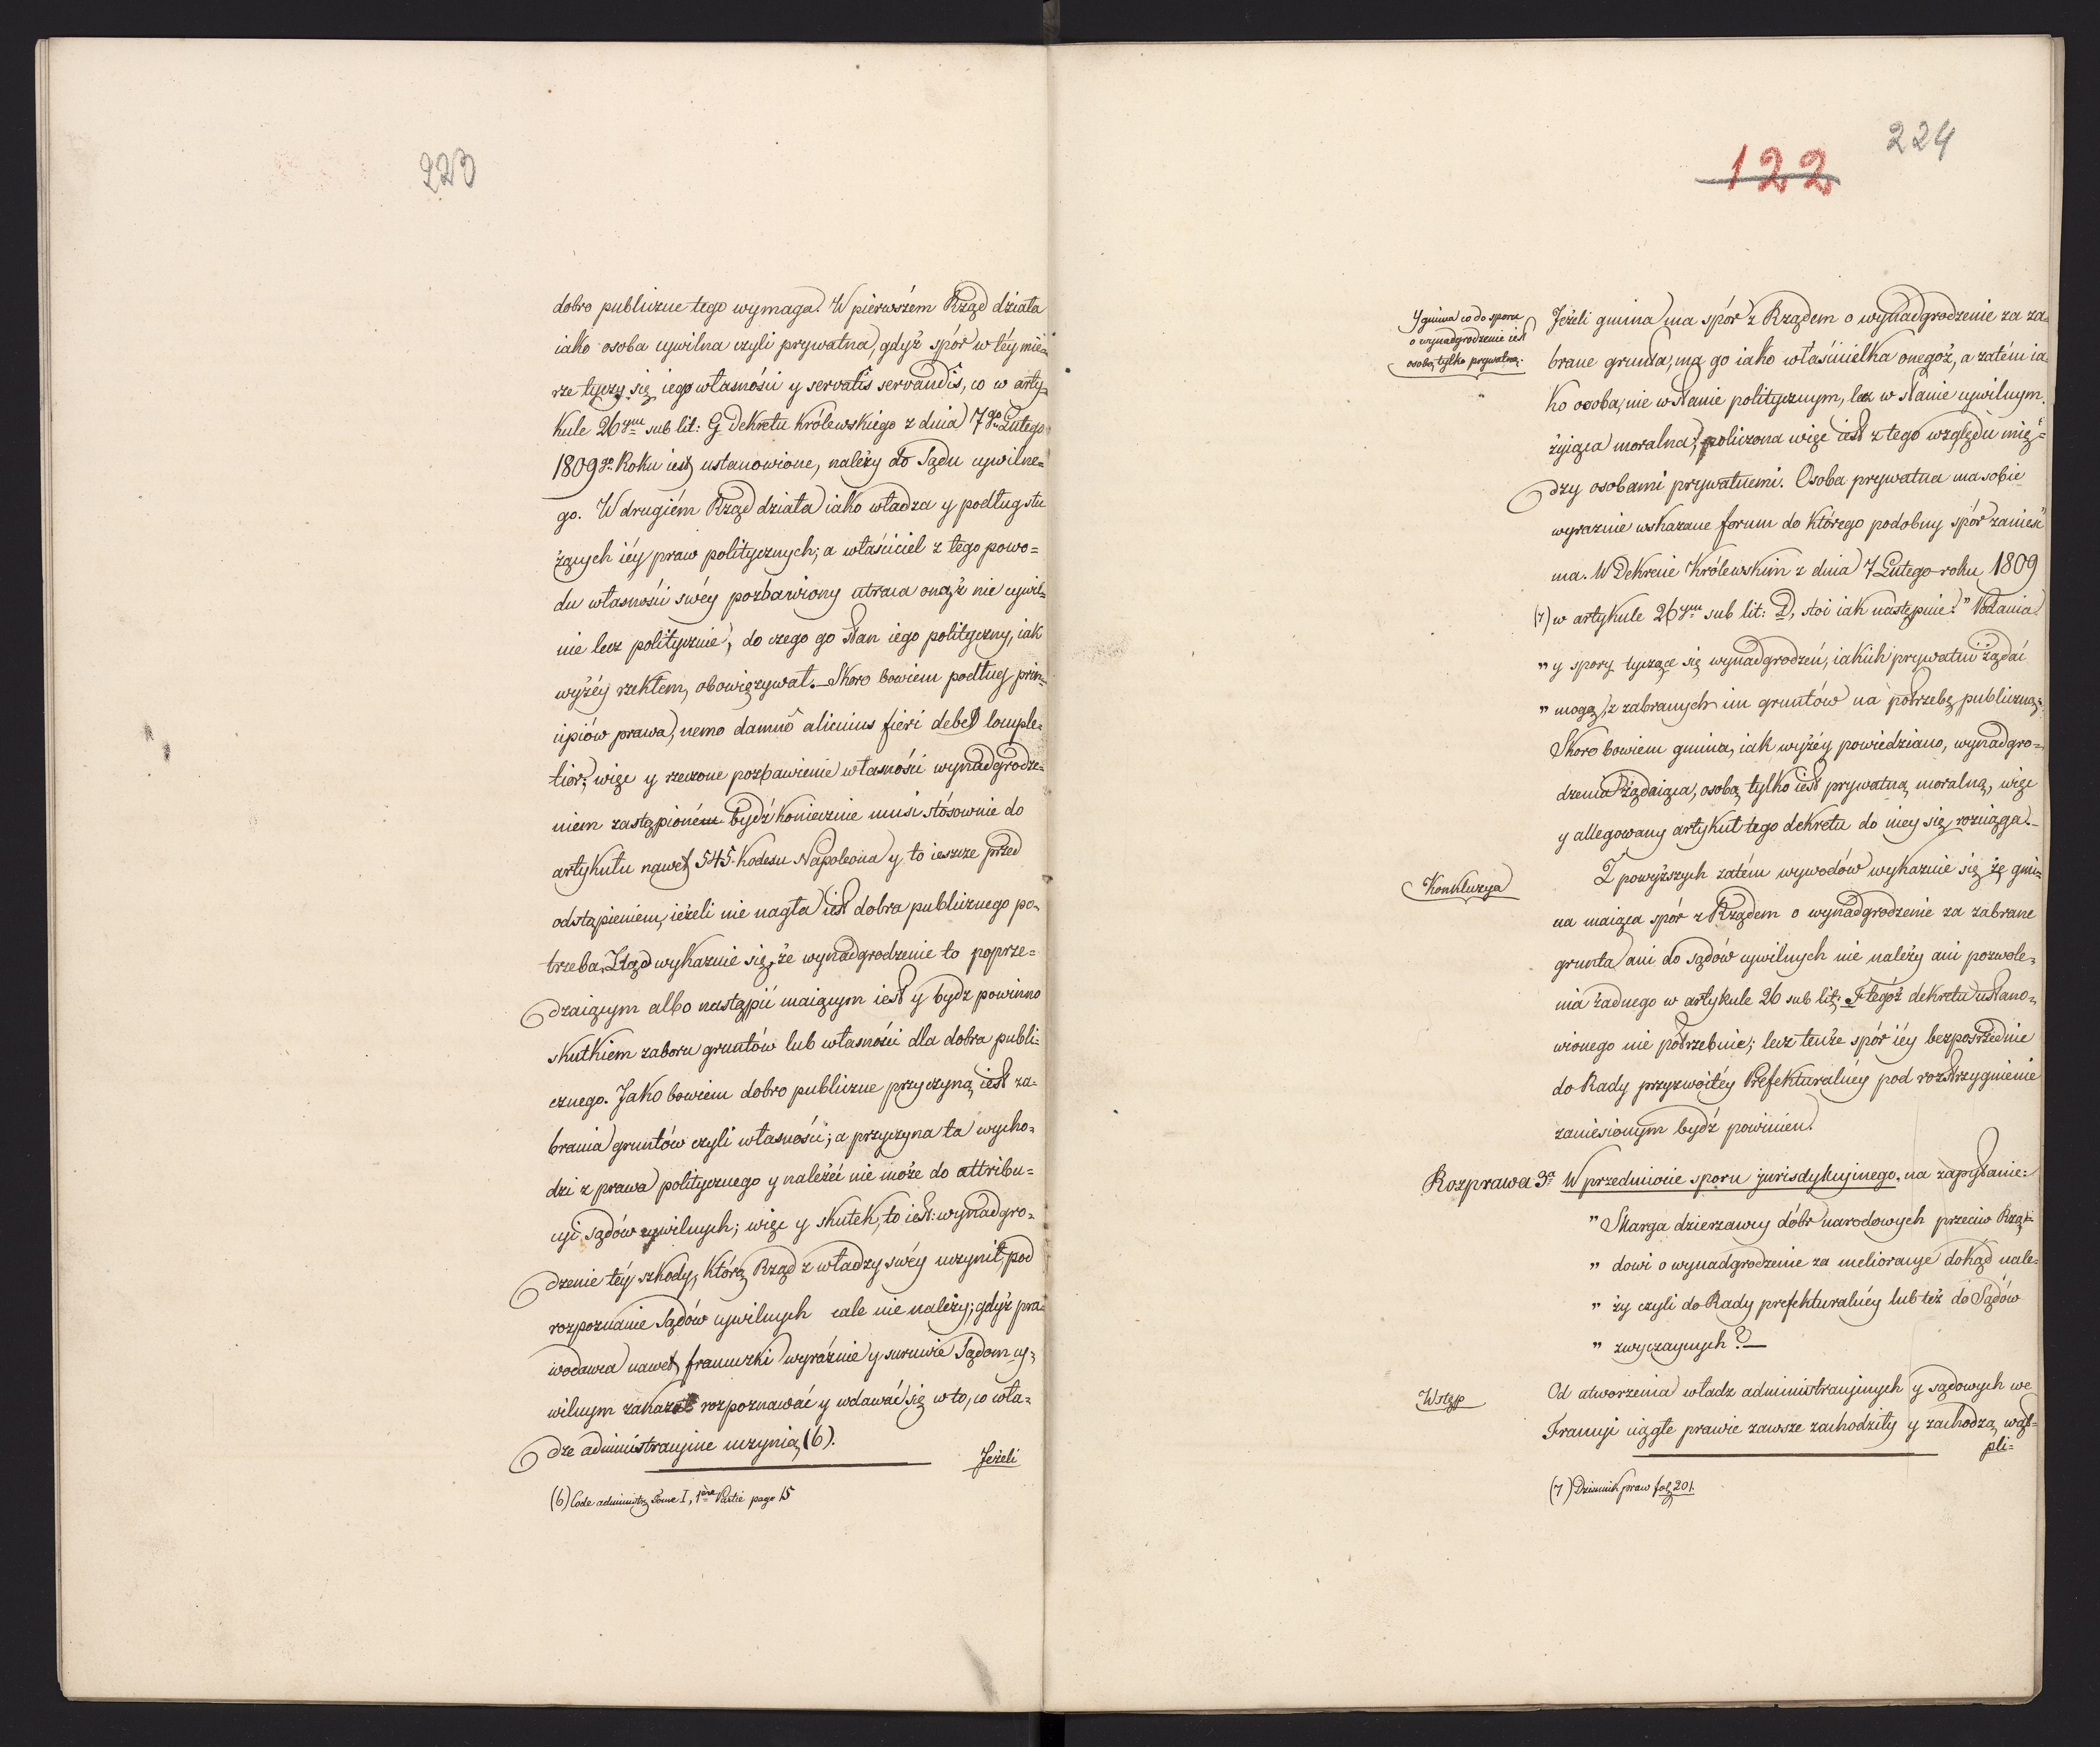 223
dobro publiczne tego wymaga. W pierwszém Rząd działa
iako osoba cywilna czyli prywatna, gdyż spór w téy mie=
rze tyczy się iego własności y servatis servandis, co w arty=
kule 26ym sub lit: G Dekretu Królewskiego z dnia 7go Lutego
1809go Roku iest ustanowione, należy do Sądu cywilne=
go. W drugiém Rząd działa iako władza y podług słu
żących iéy praw politycznych; a właściciel z tego powo=
du własności swéy pozbawiony utraca onąż nie cywil=
nie lecz politycznie, do czego go stan iego polityczny, iak
wyżéy rzekłem, obowięzywał. Skoro bowiem podług prin=
cipiów prawa, nemo damno alicuius fieri debet locuple=
tior; więc y rzeczone pozbawienie własności wynadgrodze=
niem zastąpioném bydź koniecznie musi stósownie do
artykułu nawet 545. Kodexu Napoleona y to ieszcze przed
odstąpieniem, ieżeli nie nagła iest dobra publicznego po=
trzeba. Ztąd wykazuie się, że wynadgrodzenie to poprze=
dzaiącym albo nastąpić maiącym iest y bydz powinno
skutkiem zaboru gruntów lub własności dla dobra publi=
cznego. Jako bowiem dobro publiczne przyczyną iest za=
brania gruntów czyli własności; a przyczyna ta wycho=
dzi z prawa politycznego y należéć nie może do attribu=
cyi sądów cywilnych; więc y skutek, to iest: wynadgro=
dzenie téy szkody, którą Rząd z władzy swéy uczynił, pod
rozpoznanie Sądów cywilnych cale nie należy; gdyż pra=
wodawca nawet francuzki wyraźnie y surowie Sądom cy=
wilnym zakazał rozpoznawać y wdawać się w to, co wła=
dze administracyine uczynią (6).
Jeżeli
(6) Code administr. Tome I, 1ère Partie page 15
224
122
Y gmina co do sporu
o wynadgrodzenie iest
osobą tylko prywatną.
Jeżeli gmina ma spór z Rządem o wynadgrodzenie za za=
brane grunta, ma go iako właścicielka onegoż, a zatém ia=
ko osoba, nie w stanie politycznym, lecz w stanie cywilnym
żyiąca moralna; policzona więc iest z tego względu mię=
dzy osobami prywatnemi. Osoba prywatna ma sobie
wyraznie wskazane forum do którego podobny spór zanieść
ma. W Dekrecie Królewskim z dnia 7 Lutego roku 1809
(7) w artykule 26ym sub lit: D, stoi iak następuie: "Żądania
" y spory tyczące się wynadgrodzeń, iakich prywatni żądać
" mogą, z zabranych im gruntów na potrzebę publiczną.
Skoro bowiem gmina, iak wyżéy powiedziano, wynadgro=
dzenia żądaiąca, osobą tylko iest prywatną moralną, więc
y allegowany artykuł tego dekretu do niey się rozciąga.
Konkluzya
Z powyższych zatém wywodów wykazuie się że gmi=
na maiąca spór z Rządem o wynadgrodzenie za zabrane
grunta ani do sądów cywilnych nie należy ani pozwole=
nia żadnego w artykule 26 sub lit: F tegoż dekretu ustano=
wionego nie potrzebuie; lecz tenże spór iéy bezpośrzednie
do Rady przyzwoitéy Prefekturalnéy pod rozstrzygnienie
zaniesionym bydź powinien.
Rozprawa 3a W przedmiocie sporu jurisdykcyjnego, na zapytanie:
" Skarga dzierzawcy dóbr narodowych przeciw Rzą=
" dowi o wynadgrodzenie za melioracye dokąd nale=
" ży czyli do Rady prefekturalnéy lub też do Sądów
" zwyczaynych?
Wstęp
Od utworzenia władz administracyinych y sądowych we
Francyi ciągle prawie zawsze zachodziły y zachodzą wąt=
pli=
(7) Dziennik praw fol. 201.